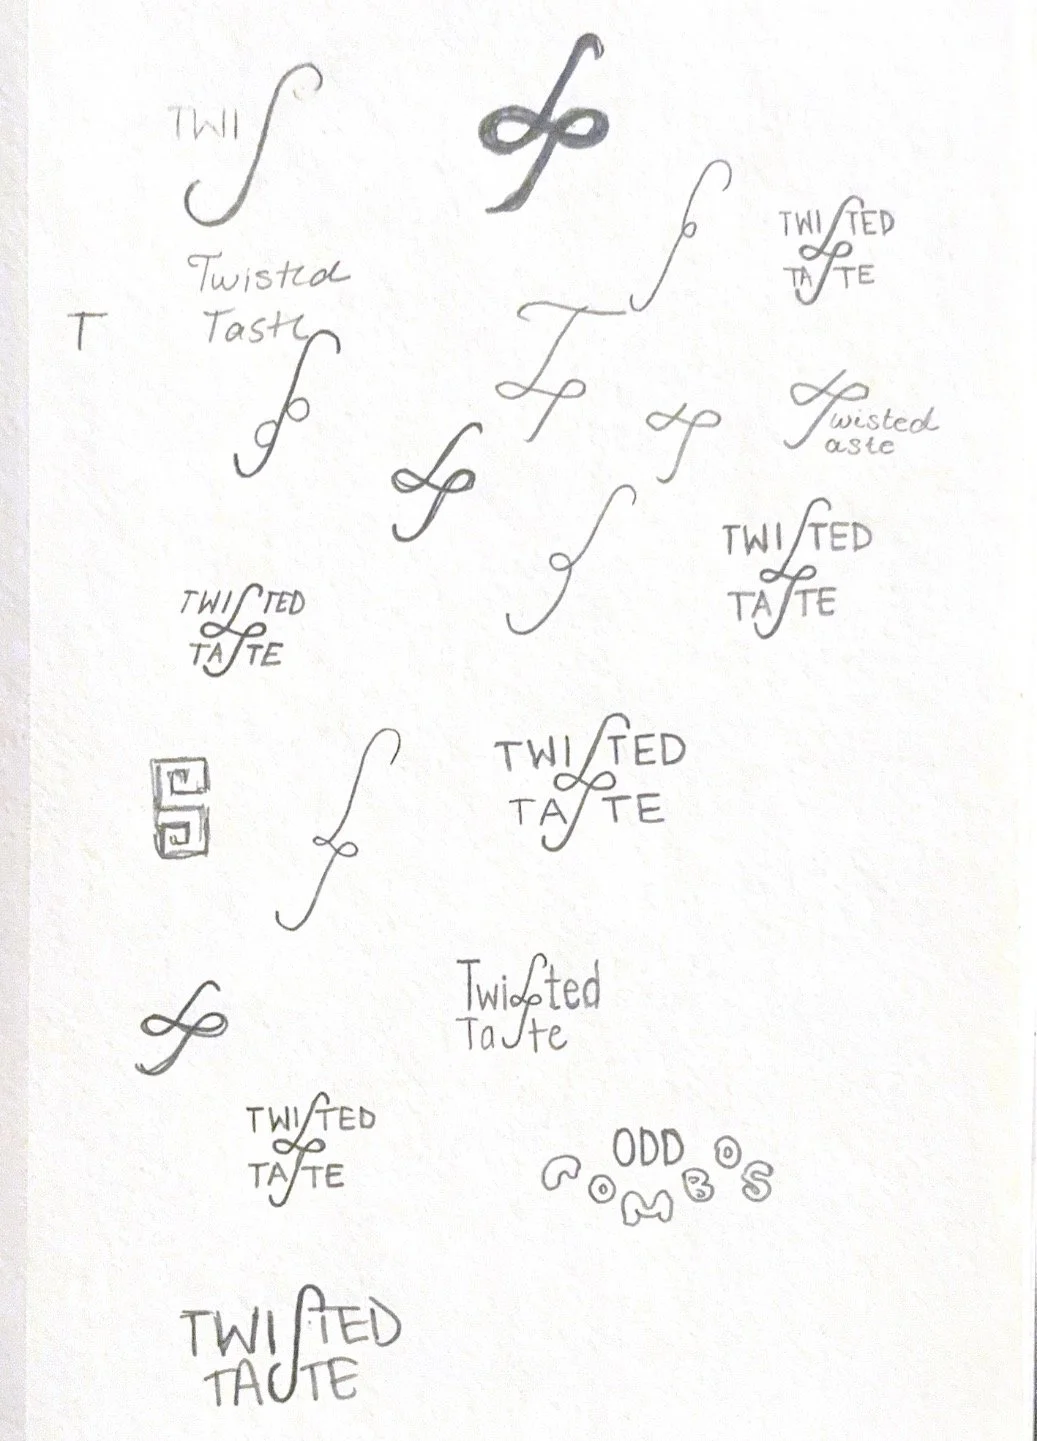 TWIS
TWISTED
TASTE
Twisted
Taste
T
Twisted
Taste
TWISTED
TASTE
TWISTED
TASTE
TWISTED
TASTE
Twisted
Taste
TWISTED
TASTE
ODD
COMBOS
TWISTED
TASTE